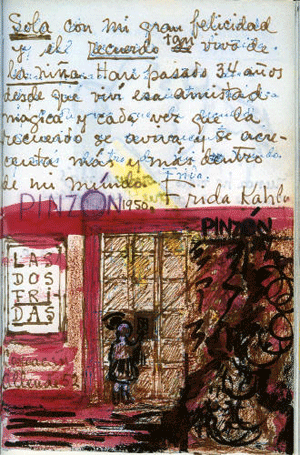 Sola con mi gran felicidad
y el recuerdo tan vivo de
la niña. Han pasado 34 años
desde que viví esa amistad
magica y cada vez que la
recuerdo se aviva y se acre-
centa mas y mas dentro
de mi mundo.
PINZÓN 1950. Frida Kahlo
PINZÓN
LAS
DOS
FRI-
DAS
Coyoacan
Allende 52